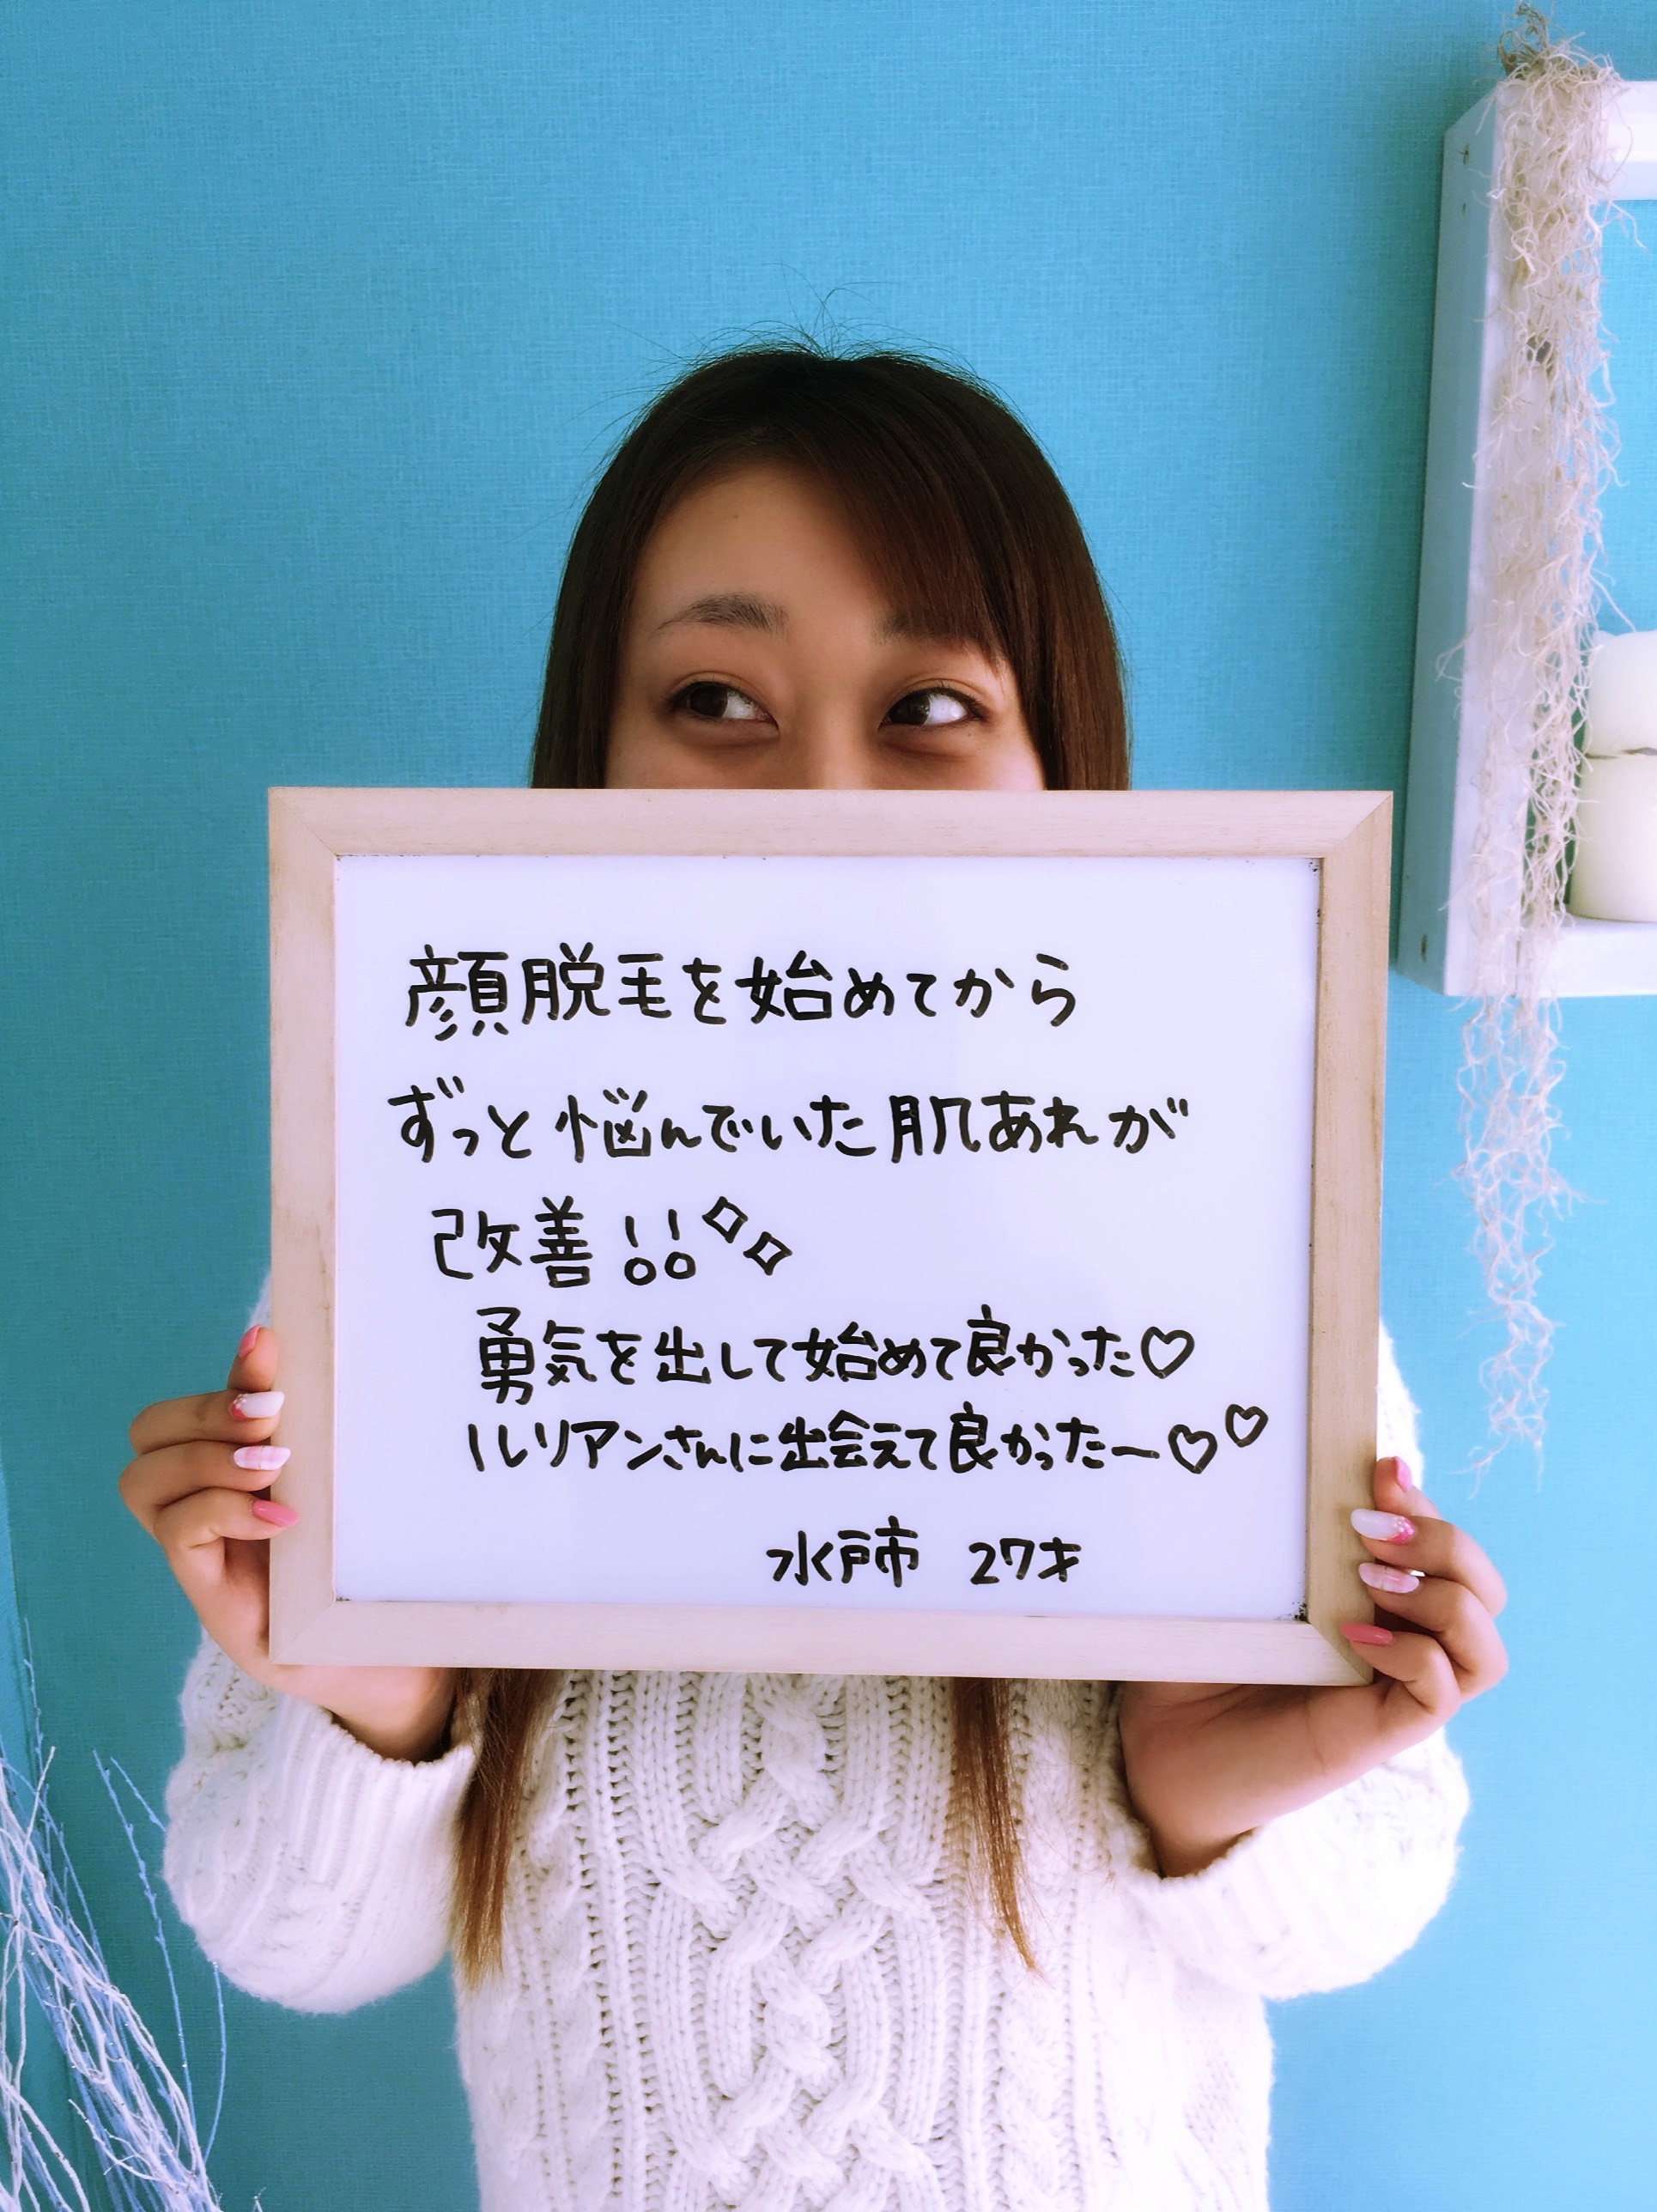 顔脱毛を始めてから
ずっと悩んでいた肌あれが
改善!!✧✧
勇気を出して始めて良かった♡
ルリアンさんに出会えて良かったー♡♡
水戸市 27才